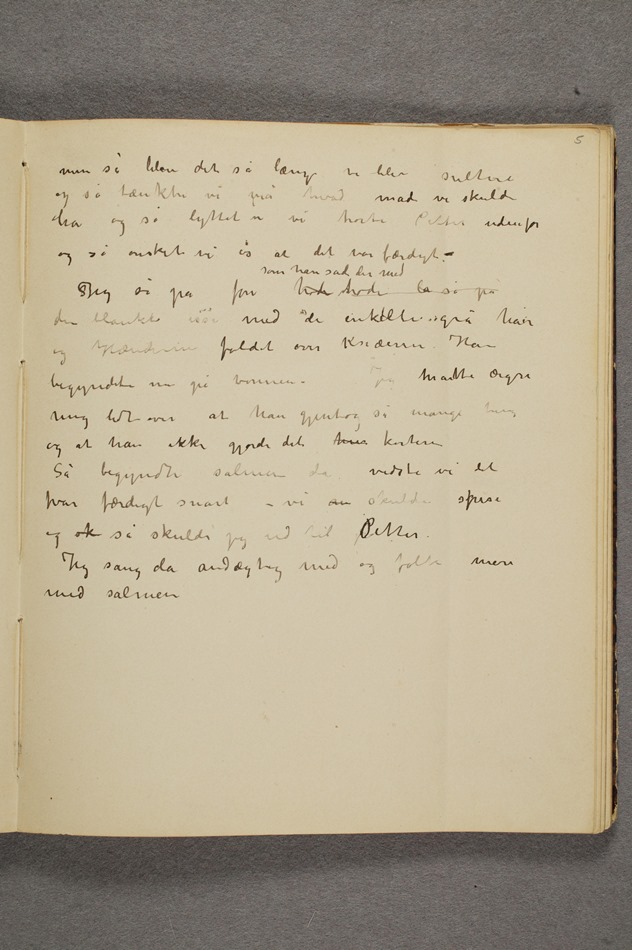 5
men så blev det så længe vi blev sultene
og så tænkte vi på hvad mad vi skulde
ha og så lyttet vi vi hørte Petter udenfor
og så ønsket vi os at det var færdigt. –
som han sad der med
Jeg så på far
den blanke med de enkelte grå hår
og Hænderne foldet over Knæerne. Han
begyndte nu på bønnen – jeg måtte ærgre
mig lidt over at han gjentog så mange ting
og at han ikke gjorde det kortere
Så begyndte salmen da vidste vi at
var færdigt snart – vi skulde spise
og så skulde jeg ud til Petter.
Jeg sang da andægtig med og fulte mere
med salmen